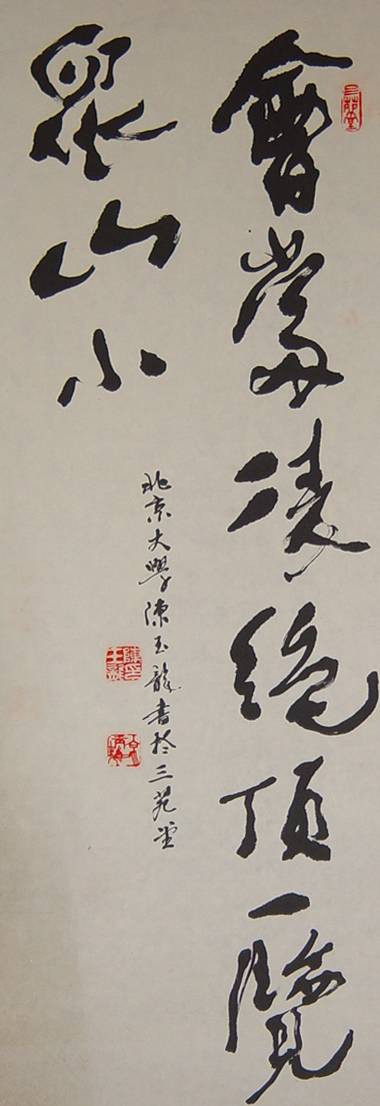 會當凌絕頂一覽
眾山小
北京大學陳玉龍書於三苑堂